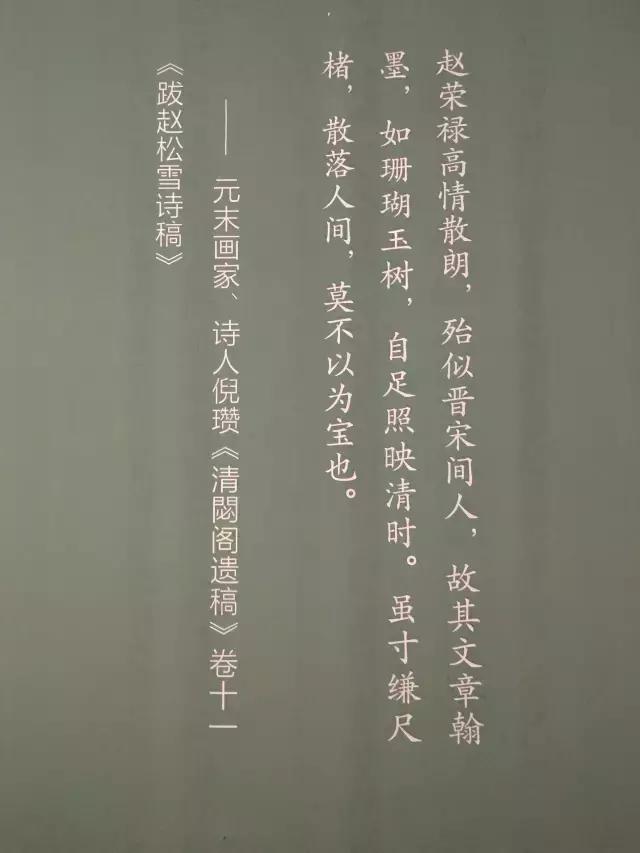 赵荣禄高情散朗，殆似晋宋间人，故其文章翰
墨，如珊瑚玉树，自足照映清时。虽寸缣尺
楮，散落人间，莫不以为宝也。
—— 元末画家、诗人倪瓒《清閟阁遗稿》卷十一
《跋赵松雪诗稿》